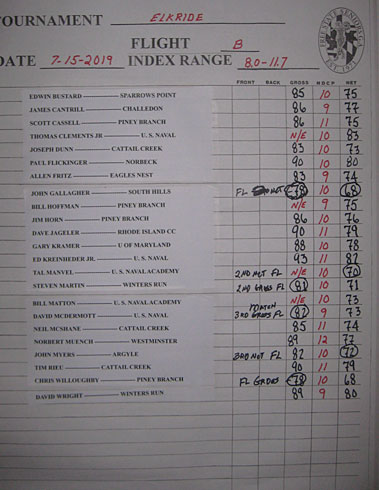 TOURNAMENT ELKRIDE
FLIGHT B
DATE 7-15-2019 INDEX RANGE 8.0-11.7
FRONT BACK GROSS HDCP NET
EDWIN BUSTARD SPARROWS POINT 85 10 75
JAMES CANTRILL CHALLEDON 86 9 77
SCOTT CASSELL PINEY BRANCH 86 11 75
THOMAS CLEMENTS JR U. S. NAVAL N/E 10 83
JOSEPH DUNN CATTAIL CREEK 83 10 73
PAUL FLICKINGER NORBECK 90 10 80
ALLEN FRITZ EAGLES NEST 83 9 74
JOHN GALLAGHER SOUTH HILLS FL NET 78 10 68
BILL HOFFMAN PINEY BRANCH N/E 9 75
JIM HORN PINEY BRANCH 86 10 76
DAVE JAGELER RHODE ISLAND CC 90 11 79
GARY KRAMER U OF MARYLAND 88 10 78
ED KREINHEDER JR. U. S. NAVAL 93 11 82
TAL MANVEL U. S. NAVAL ACADEMY 2ND NET FL N/E 10 70
STEVEN MARTIN WINTERS RUN 2ND GROSS FL 81 10 71
BILL MATTON U. S. NAVAL ACADEMY N/E 10 73
DAVID MCDERMOTT U. S. NAVAL MATCH 3RD GROSS FL 82 9 73
NEIL MCSHANE CATTAIL CREEK 85 11 74
NORBERT MUENCH WESTMINSTER 89 12 77
JOHN MYERS ARGYLE 3RD NET FL 82 10 72
TIM RIEU CATTAIL CREEK 90 11 79
CHRIS WILLOUGHBY PINEY BRANCH FL GROSS 78 10 68
DAVID WRIGHT WINTERS RUN 89 9 80